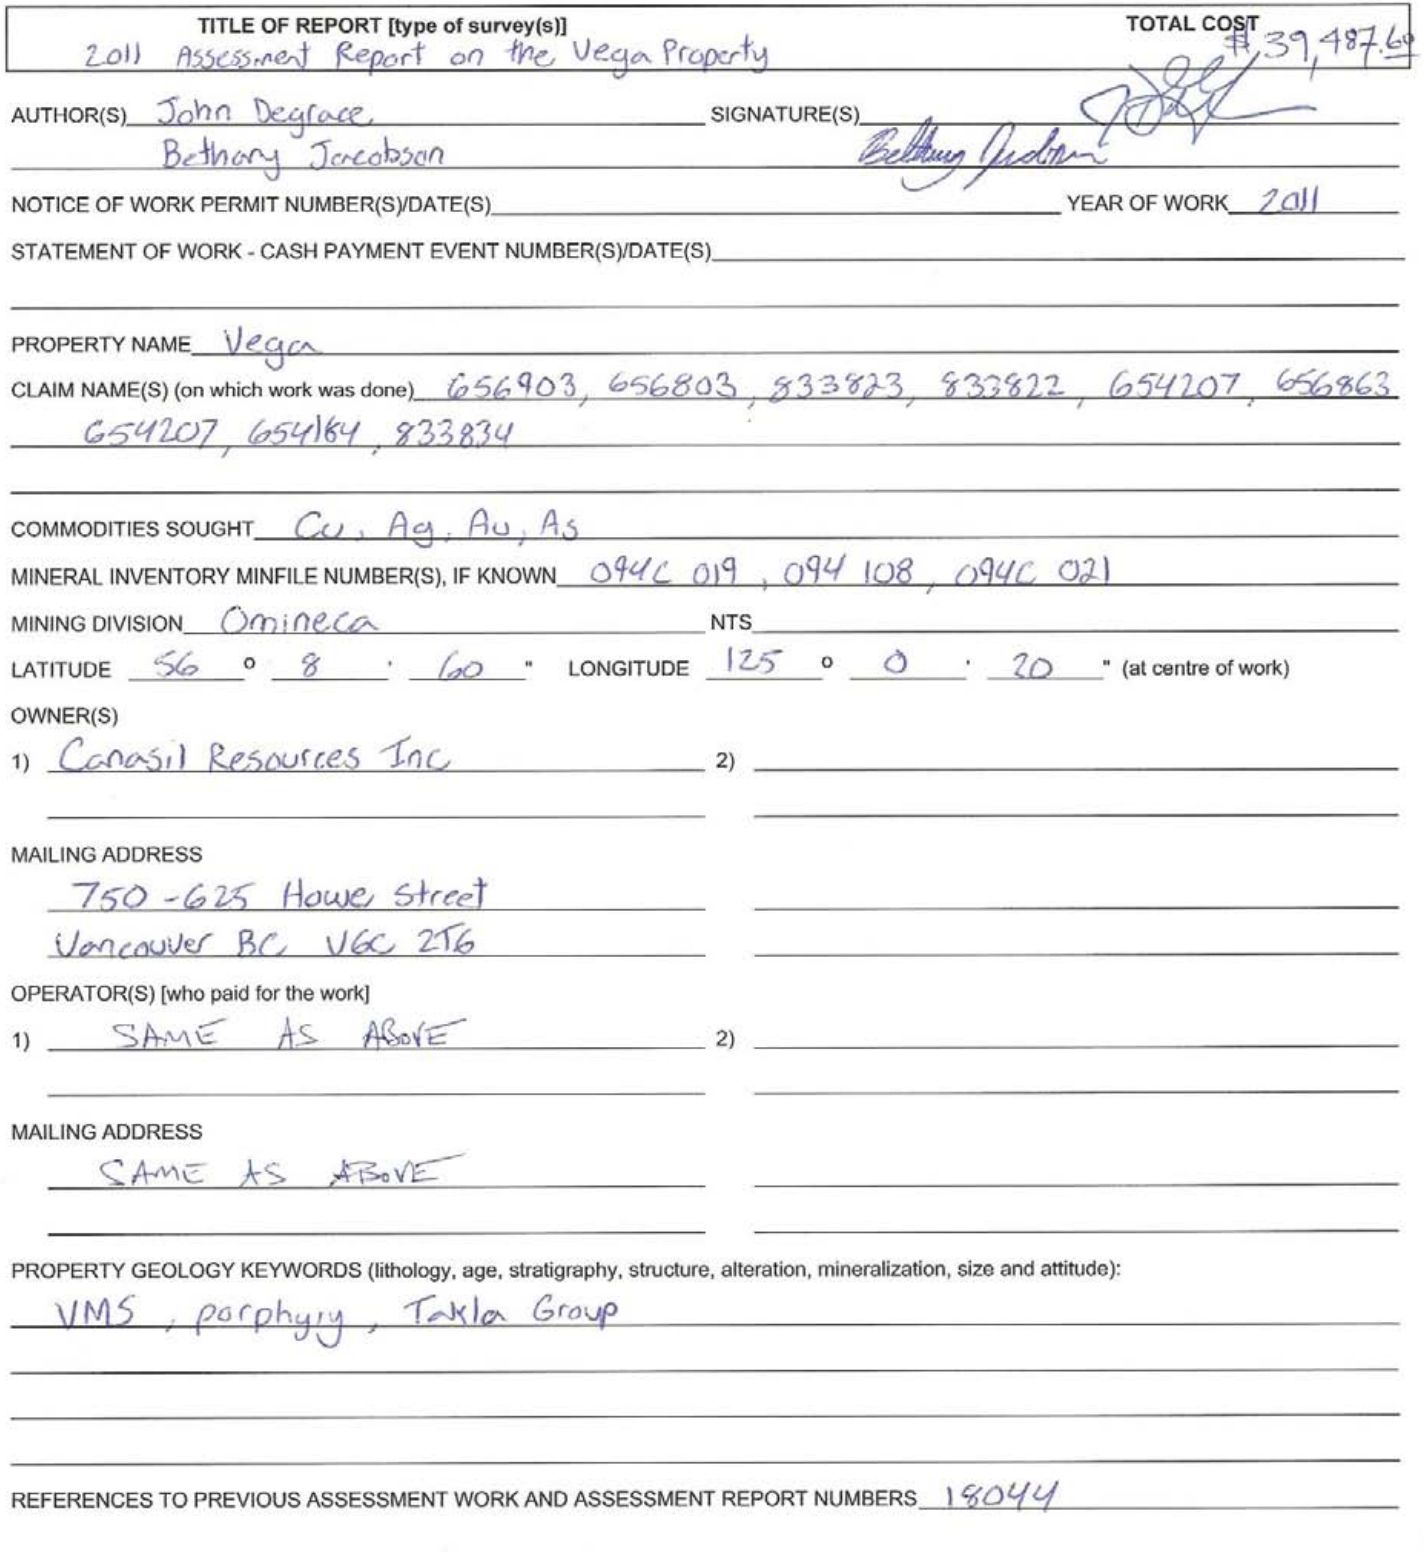 TITLE OF REPORT [type of survey(s)] TOTAL COST
2011 Assessment Report on the Vega Property $39,487.60
AUTHOR(S) John Degrace SIGNATURE(S)
Bethany Jacobson
NOTICE OF WORK PERMIT NUMBER(S)/DATE(S) YEAR OF WORK 2011
STATEMENT OF WORK - CASH PAYMENT EVENT NUMBER(S)/DATE(S)
PROPERTY NAME Vega
CLAIM NAME(S) (on which work was done) 656903, 656803, 833823, 833822, 654207, 656863
654207, 654164, 833834
COMMODITIES SOUGHT Cu, Ag, Au, As
MINERAL INVENTORY MINFILE NUMBER(S), IF KNOWN 094C 019, 094 108, 094C 021
MINING DIVISION Omineca NTS
LATITUDE 56 o 8 ' 60 " LONGITUDE 125 o 0 ' 20 " (at centre of work)
OWNER(S)
1) Canasil Resources Inc 2)
MAILING ADDRESS
750-625 Howe Street
Vancouver BC V6C 2T6
OPERATOR(S) [who paid for the work]
1) SAME AS ABOVE 2)
MAILING ADDRESS
SAME AS ABOVE
PROPERTY GEOLOGY KEYWORDS (lithology, age, stratigraphy, structure, alteration, mineralization, size and attitude):
VMS, porphyry, Takla Group
REFERENCES TO PREVIOUS ASSESSMENT WORK AND ASSESSMENT REPORT NUMBERS 18044